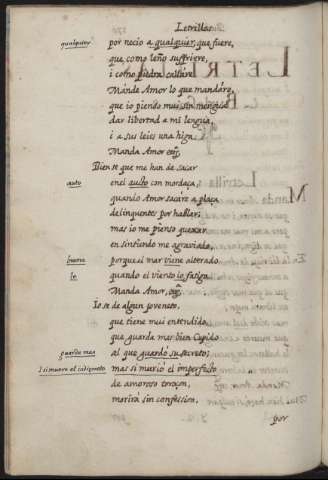 Letrillas
qualquier
por necio a qualquier, que fuere,
que, como leño suffriere,
i como piedra callare
Mande Amor lo que mandare,
que io pienso mui sin mengua
dar libertad a mi lengua,
i a sus leies una higa
Manda Amor
Bien se que me han de sacar
auto
en el austo con mordaça,
quando Amor sacare a plaça
delinquentes por hablar;
mas io me pienso quexar
en sintiendo me agraviado,
buena
porque el mar viene alterado
lo
quando el viento lo fatiga
Manda Amor,
Io se de algun joveneto,
que tiene mui entendido,
que guarda mas bien Cupido
guarde mas
al que guardó su secreto;
I si muere el indiscreto
mas si murió el imperfecto
de amoroso toraçon,
morirà sin confession,
por